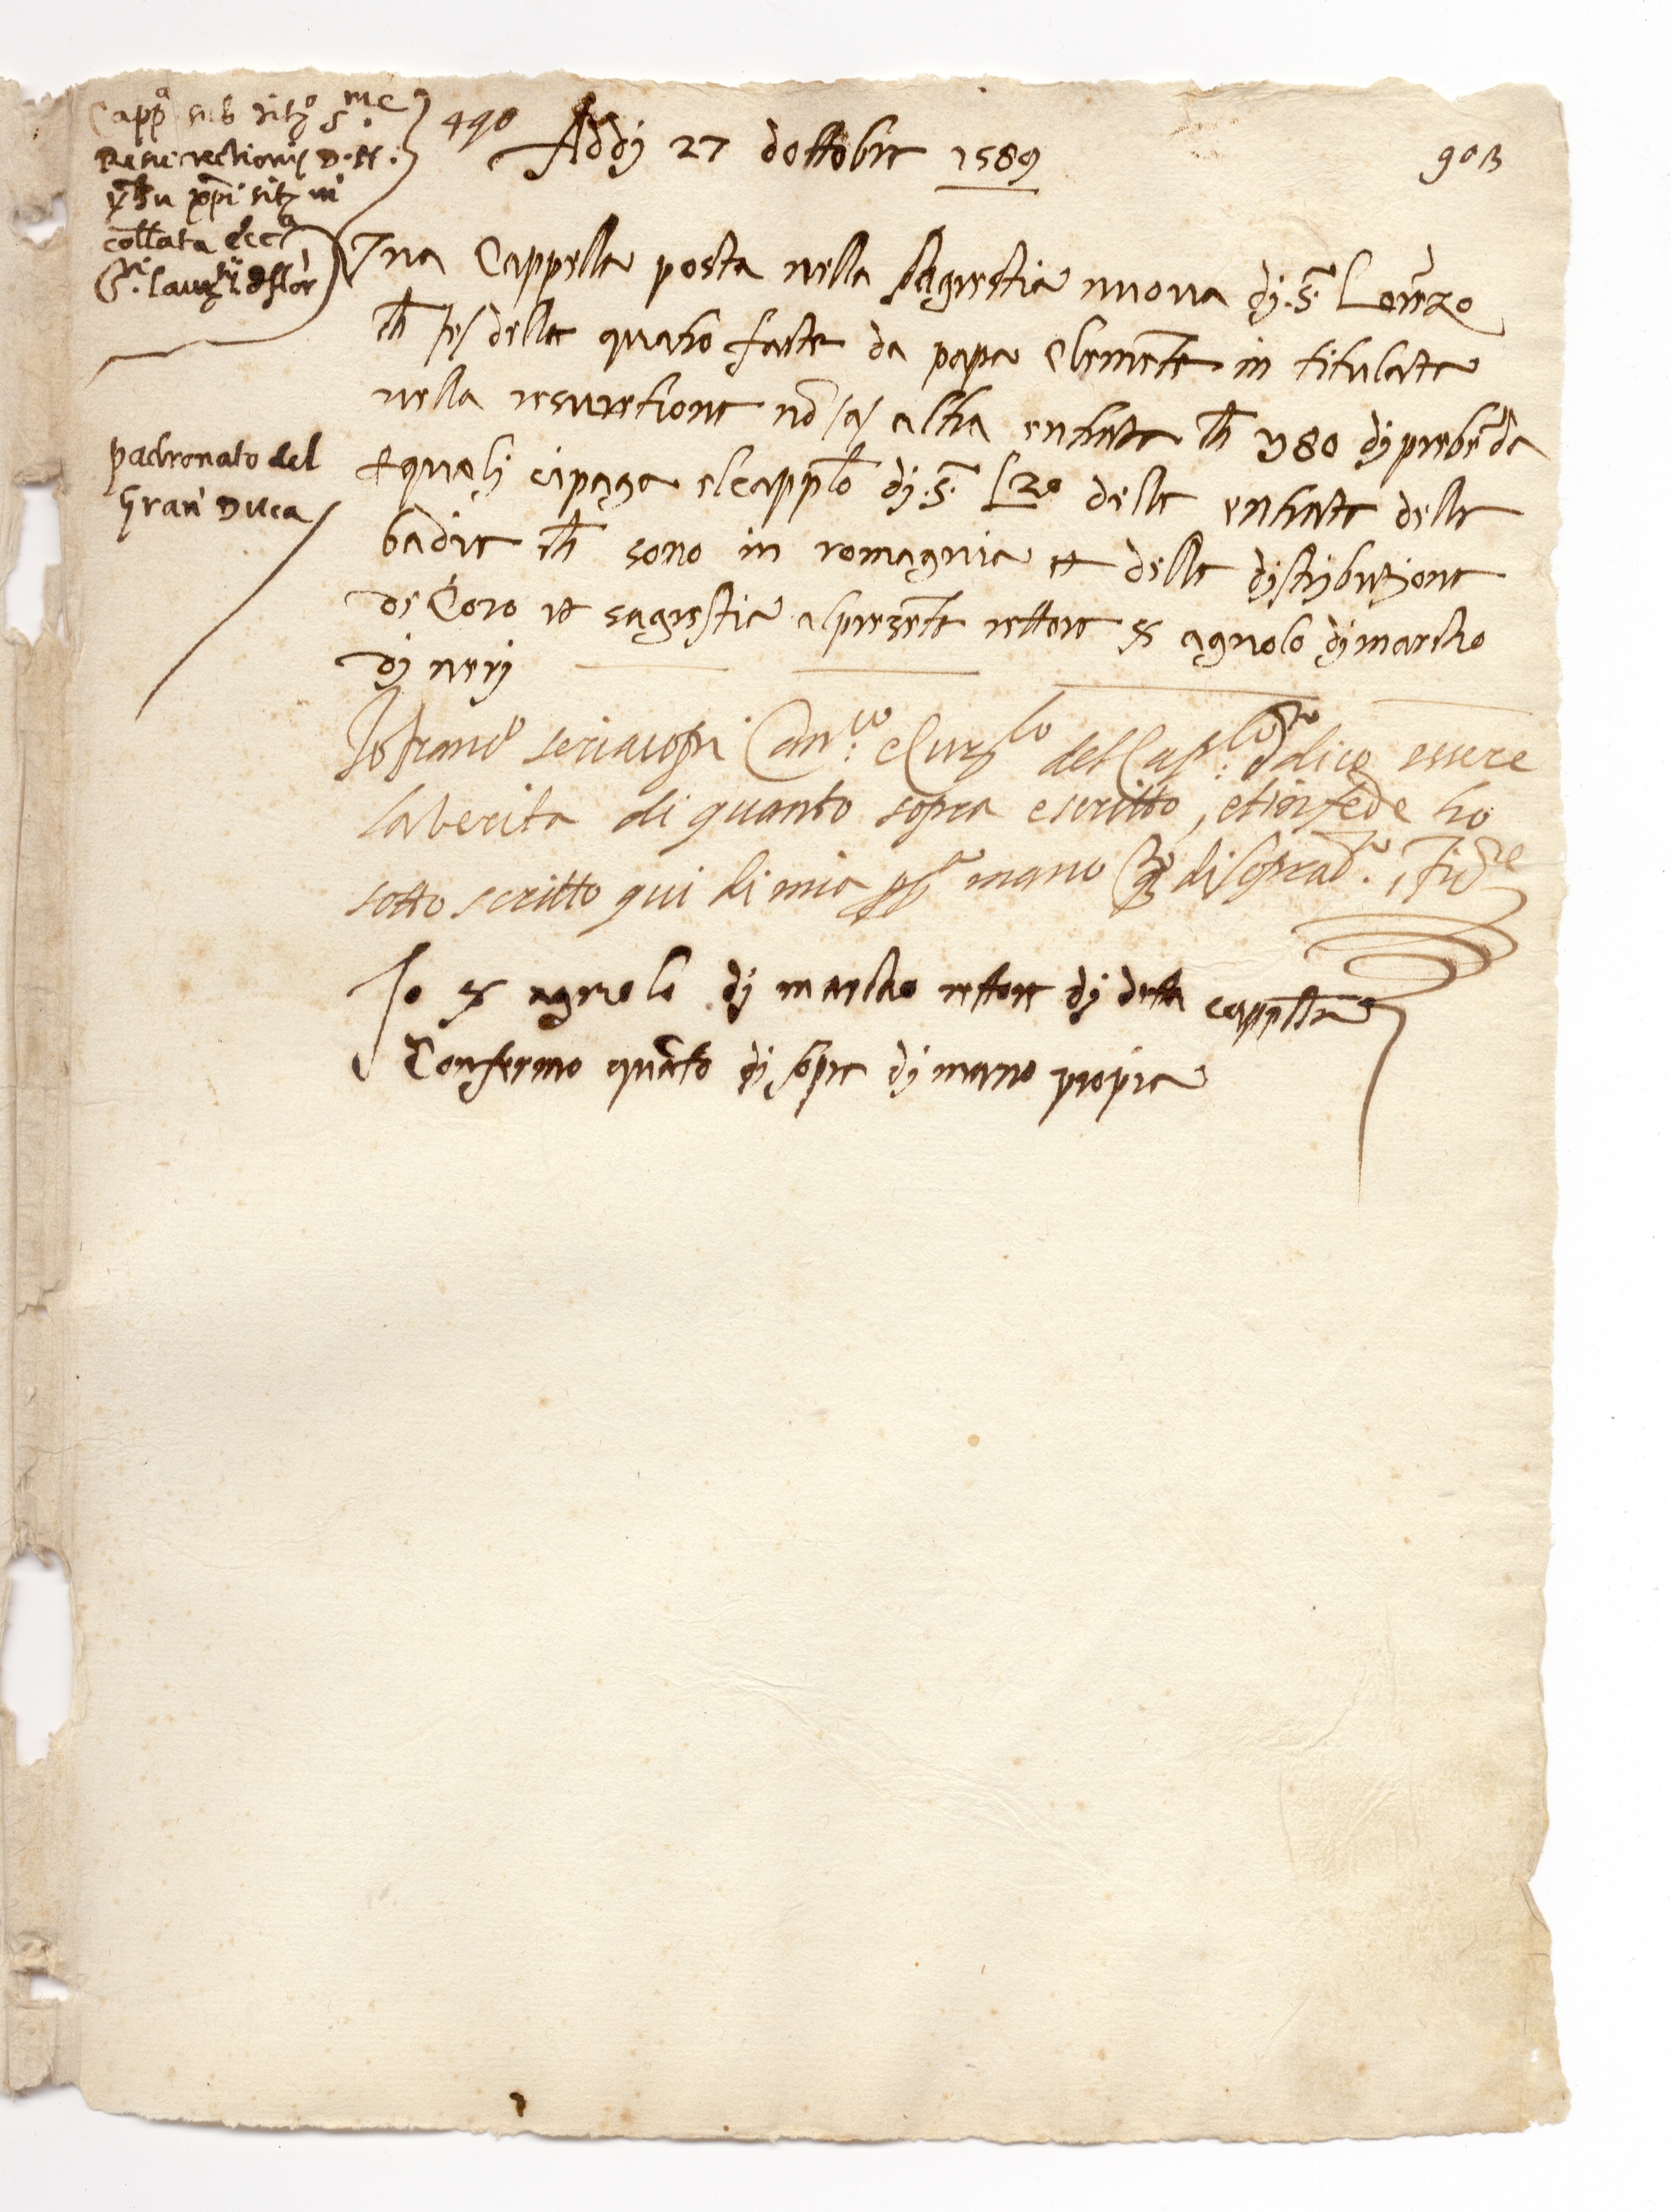 Capp.ᵃ sub tit.º S.ᵐᵉ
Resurrectionis D. N.
yhu xpi sit in
collata ecc.ᵃ
S.ᵗⁱ Laurᵗⁱʲ d flor
490
Addj 27 dottobre 1589
903
Una Cappella posta nella sagrestia nuova dj S. Lorēzo
ch /e/ delle quatro fatte da papa Clemēte in titulata
nella resuretione nō /a/ altra entrata ch y 80 dj prebēda
padronato del
Gran Duca
equalj cipaga el capplo dj S. Lzo delle entrate delle
badie ch sono in romagnia et delle distribuzione
de Coro et sagrestia alpresēte rettore s agnolo dj marcho
dj nerj
Io franc.º seriacopi Can.ᶜᵒ del Cap.ˡᵒ dico essere
la verita di quanto sopra e scritto, et in fede ho
sotto scritto qui di mia pp.ᵃ mano di sopra d.º
Io s agnolo dj marcho rettore dj detta cappella
Confermo quāto dj sopra dj mano propia